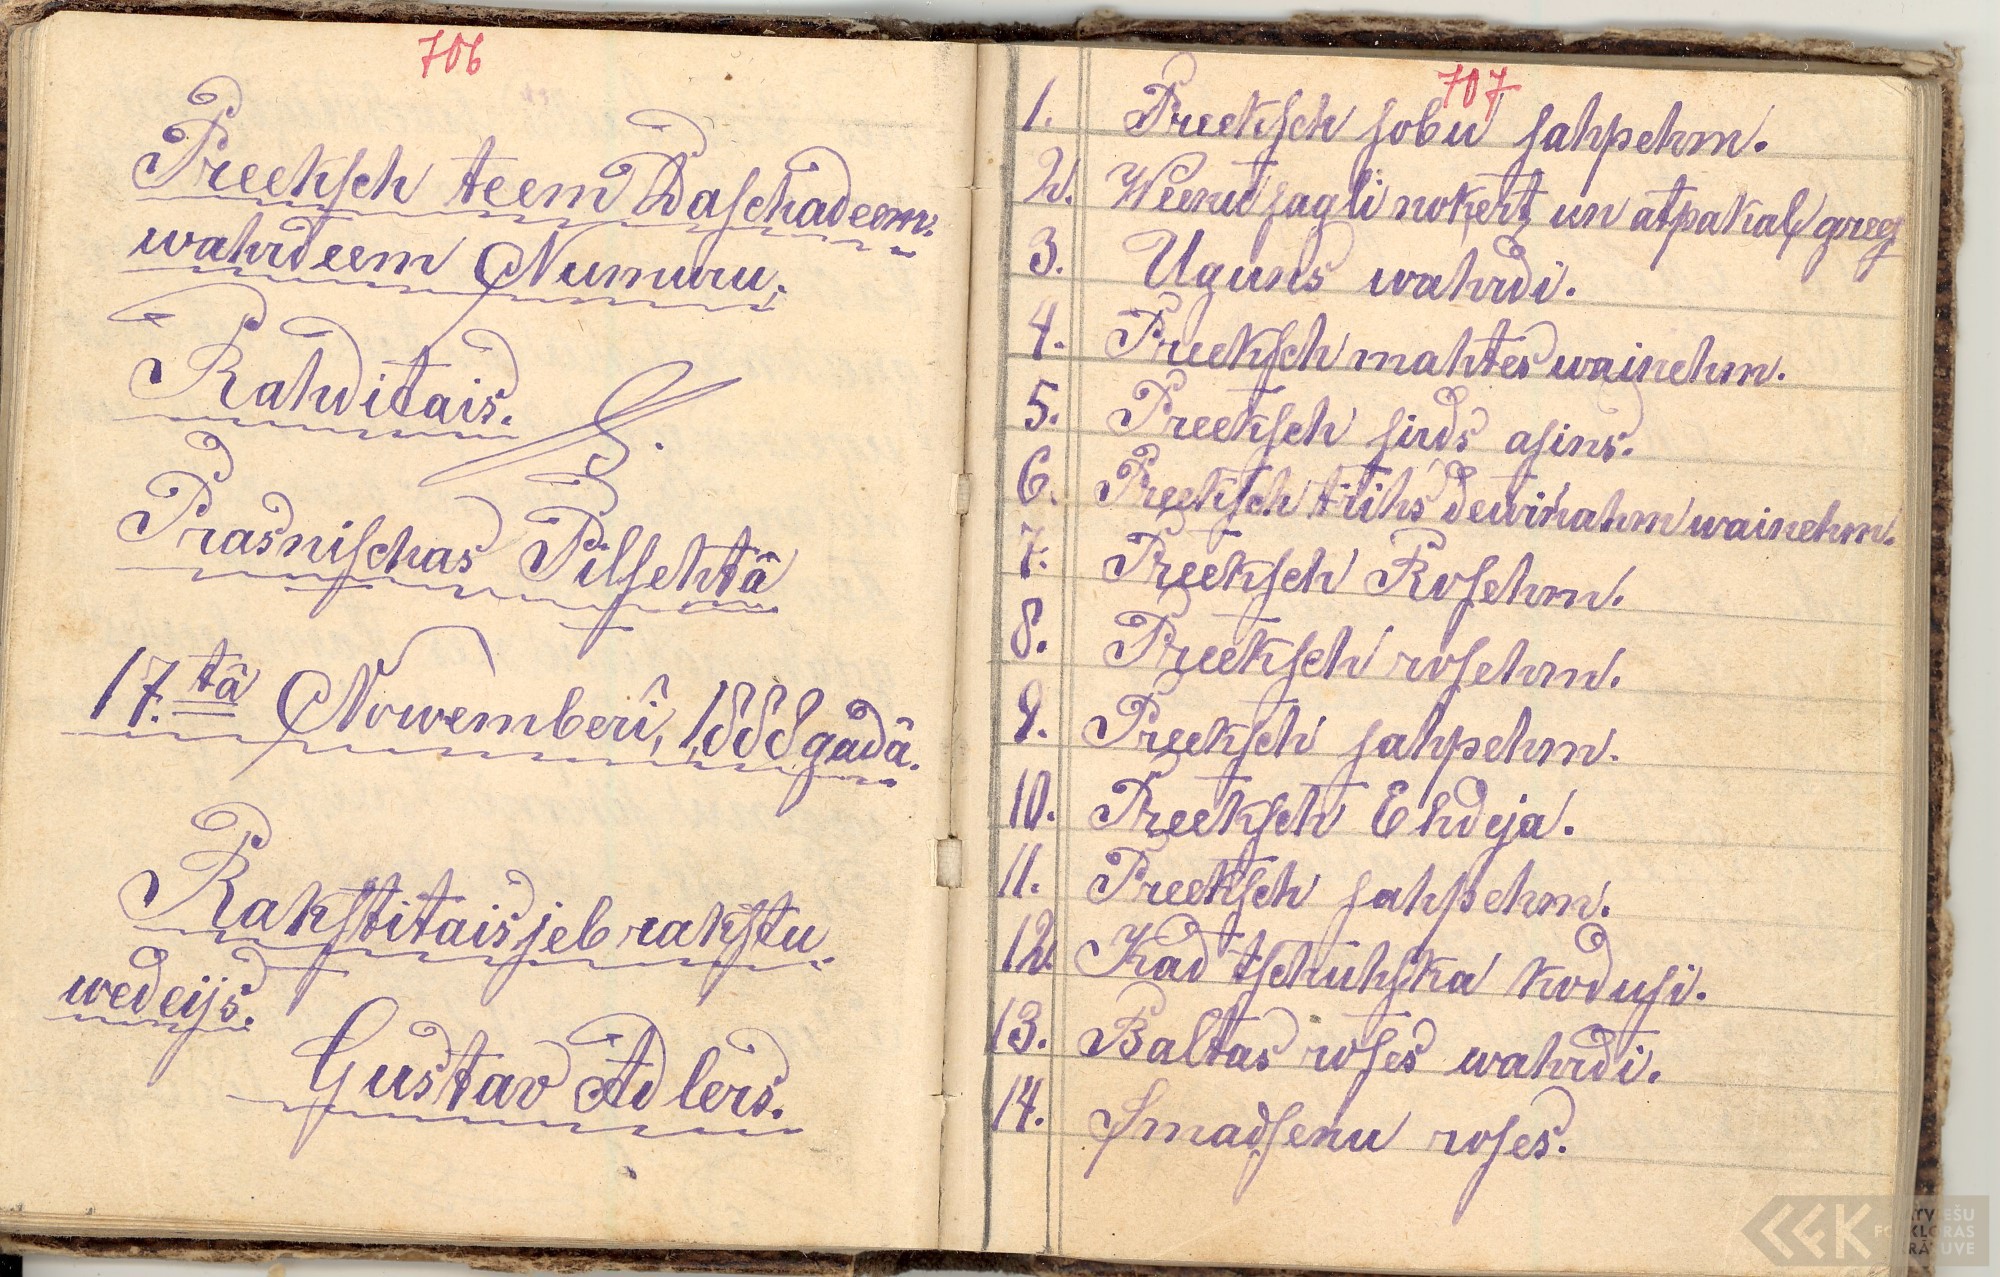 706
Preeksch teem Daschadeem
wahrdeem Numuru,
Rahditais.
Prasnischas Pilsehtâ
17.tâ Nowemberî, 1888 gadâ.
Rakstitais jeb rakstu
wedeijs.
Gustav Adlers.
707
1. Preeksch sobu sahpehm.
2. Weenu sagli nokert, un atpakal greest
3. Uguns wahrdi.
4. Preeksch mahtes wainehm.
5. Preeksch sirds asins.
6. Preeksch trihs dewinahm wainehm.
7. Preeksch Rosehm.
8. Preeksch rosehm.
9. Preeksch sahpehm.
10. Preeksch Ehdeja.
11. Preeksch sahpehm.
12. Kad tschuhska kodusi.
13. Baltas roses wahrdi.
14. Smadsenu roses.
LATVIEŠU
FOLKLORAS
KRĀTUVE